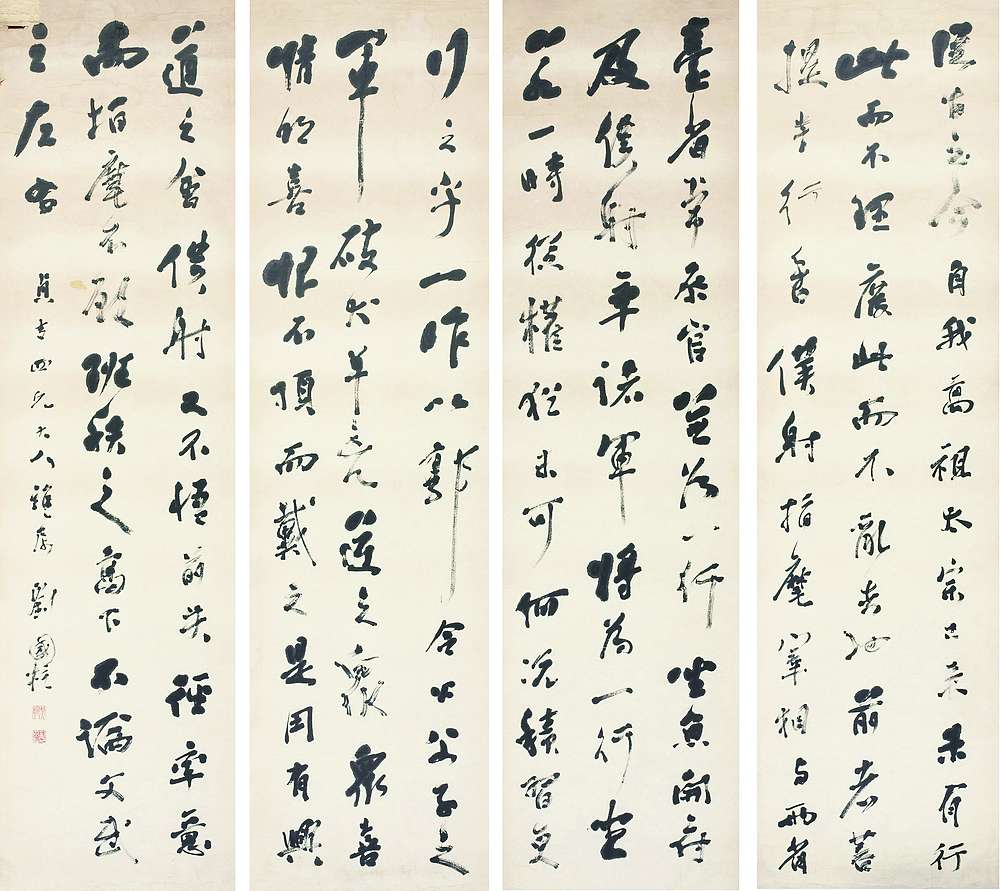 從古至今自我高祖太宗已来未有行
此而不理廢此而不亂者也前者菩
提寺行香僕射指麾宰相与兩省
臺省常參官並為一行坐魚開府
及僕射率諸軍將為一行坐
若一時從權猶未可何況積習更
行之乎一昨以郭令公父子之
軍破犬羊兇逆之眾衆喜
情欣喜恨不頂而戴之是用有興
道之會僕射又不悟前失徑率意
而指麾不顧班秩之高下不論文武
之左右
貞吉四兄大人雅屬 劉國柱